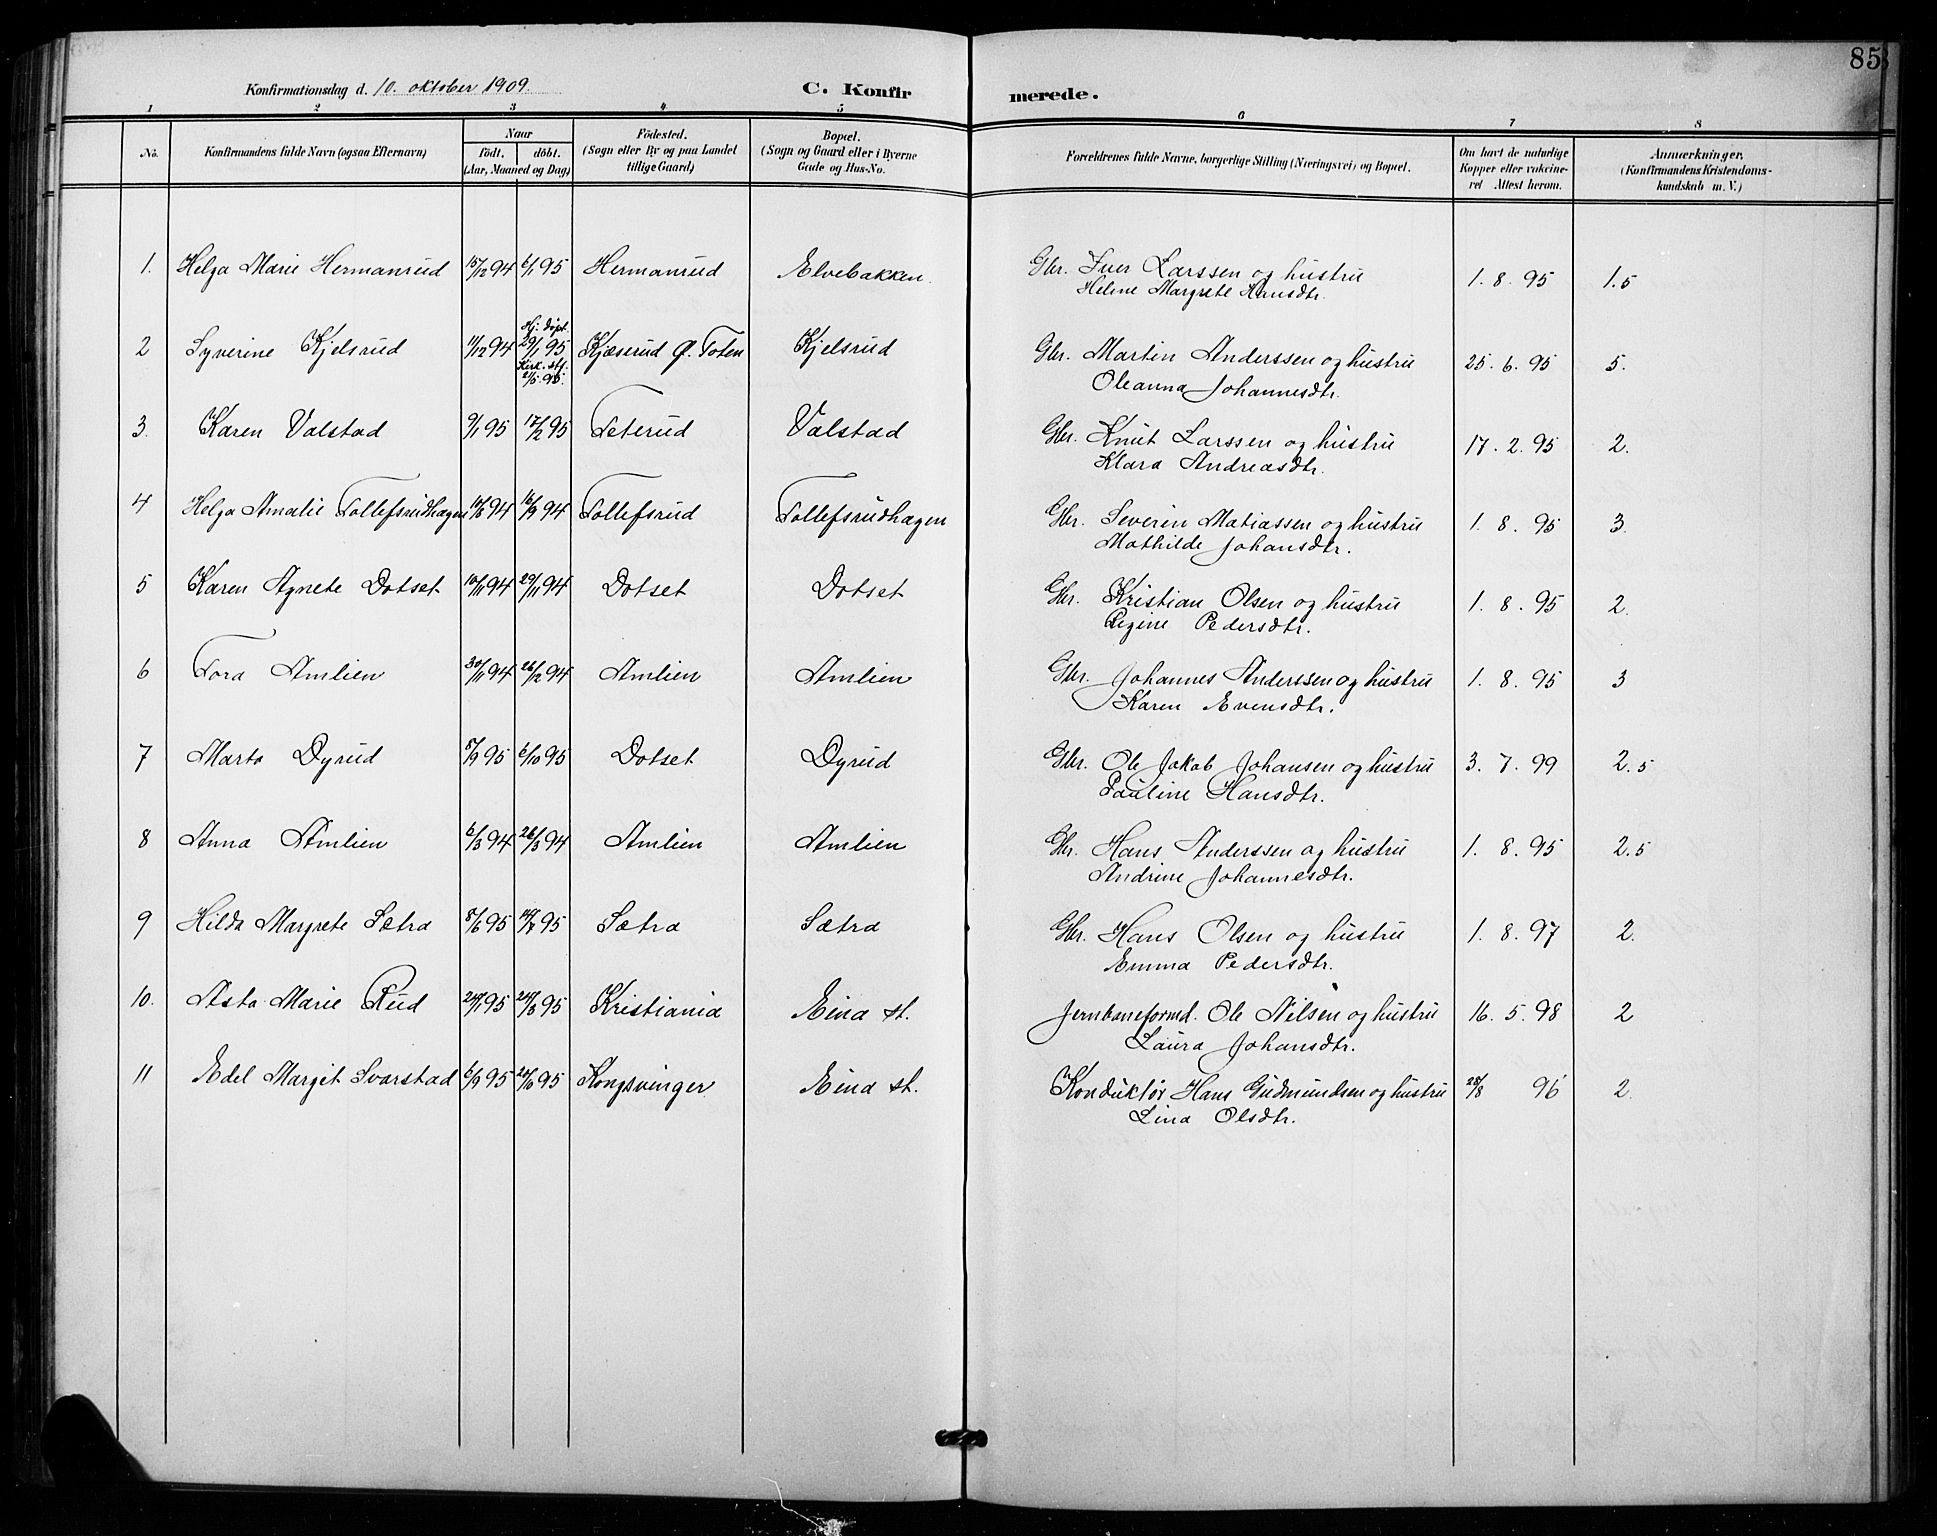 85
Konfirmationsdag d. 10. oktober 1909.
C. Konfirmerede.
1 2 3 4 5 6 7 8
No. | Konfirmandens fulde Navn (ogsaa Efternavn) | Naar födt. döbt. (Aar, Maaned og Dag) | Födested. (Sogn eller By og paa Landet tillige Gaard) | Bopæl. (Sogn og Gaard eller i Byerne Gade og Hus-No. | Forældrenes fulde Navne, borgerlige Stilling (Næringsvei) og Bopæl. | Om havt de naturlige Kopper eller vakcineret Attest herom. | Anmærkninger. (Konfirmandens Kristendomskundskab m. V.)
1. Helga Marie Hermanrud 15/12 94 6/1 95 Hermanrud Elvebakken. Gbr. Iver Larssen og hustru 1. 8. 95 1.5
Helene Margrete Hansdtr.
2 Syverine Kjelsrud 11/12 94 Hj. døpt 29/1 95 Kirk. stf. 2/5 95. Kjæserud Ø. Toten Kjelsrud Gbr. Martin Anderssen og hustru 25. 6. 95 5.
Oleanna Johannesdtr.
3. Karen Valstad 9/1 95 17/2 95 Teterud Valstad Gbr. Knut Larssen og hustru 17. 2. 95 2.
Klara Andreasdtr.
4 Helga Amalie Tollefsrudhagen 94 16/9 94 Tollefsrud Tollefsrudhagen Gbr. Severin Matiassen og hustru 1. 8. 95 3.
Mathilde Johansdtr.
5 Karen Agnete Dotset 10/11 94 29/11 94 Dotset Dotset Gbr. Kristian Olsen og hustru 1. 8. 95 2.
Regine Pedersdtr.
6 Tora Amlien 30/11 94 26/12 94 Amlien Amlien Gbr. Johannes Anderssen og hustru 1. 8. 95 3
Karen Evensdtr.
7 Marta Dyrud 5/9 95 6/10 95 Dotset Dyrud Gbr. Ole Jakob Johansen og hustru 3. 7. 99 2.5
Pauline Hansdtr.
8 Anna Amlien 6/3 94 26/3 94 Amlien Amlien Gbr. Hans Anderssen og hustru 1. 8. 95 2.5
Andrine Johannesdtr.
9 Hilda Margrete Sætra 5/6 95 14/7 95 Sætra Sætra Gbr. Hans Olsen og hustru 1. 8. 97 2.
Emma Pedersdtr.
10. Asta Marie Rud 24/1 95 95 Kristiania Eina st. Jernbaneformd. Ole Nilsen og hustru 16. 5. 98 2
Laura Johansdtr.
11 Edel Margit Svarstad 6/9 95 95 Kongsvinger Eina st. Konduktør Hans Gudmundsen og hustru 28/8 96 2.
Lina Olsdtr.